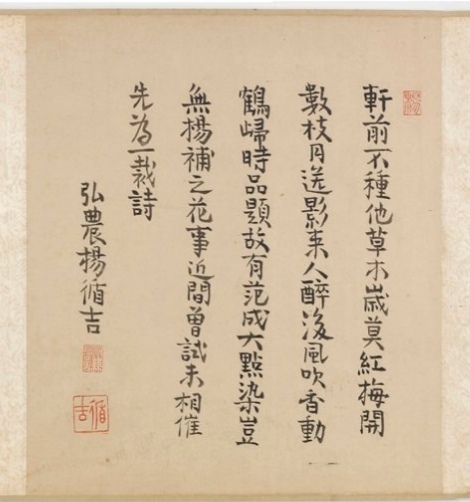 軒前不種他草木歲莫紅梅開
數枝月送影来人醉後風吹香動
鶴歸時品題故有范成大點染豈
無楊補之花事近間曾試未相催
先為一裁詩
弘農楊循吉
循吉